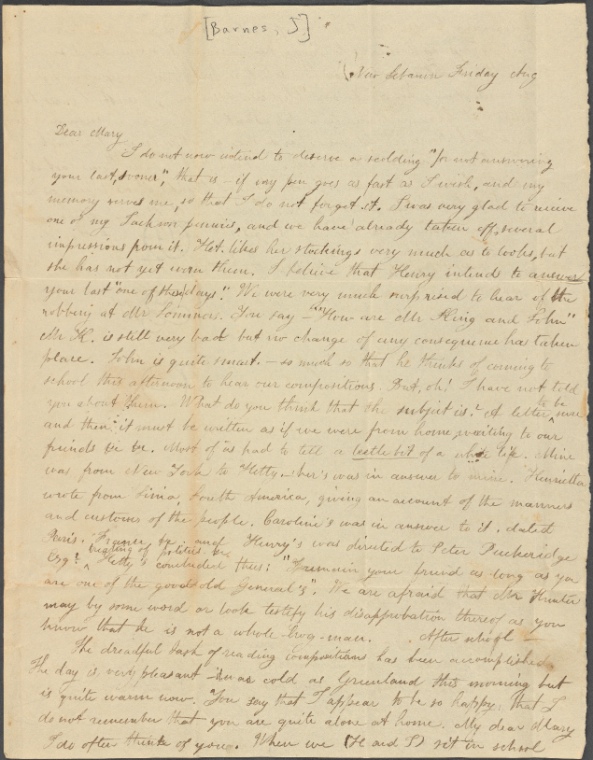 [Barnes, J]
New Lebanon Friday Aug
Dear Mary
I do not now intend to deserve a scolding "for not answering
your last, sooner", that is - if my pen goes as fast as I wish, and my
memory serves me, so that I do not forget it. I was very glad to receive
one of my Jackson pennies, and we have already taken off, several
impressions from it. Het. likes her stockings very much as to looks, but
she has not yet worn them. I believe that Henry intend to answer
your last "one of these days". We were very much surprised to hear of the
robbery at Mr You say - "How are Mr King and John"
Mr K. is still very bad but no change of any consequence has taken
place. John is quite smart. - so much so that he thinks of coming to
school this afternoon to hear our compositions. But, oh! I have not told
you about them. What do you think that the subject is? A letter, to be sure
and then it must be written as if we were from home, writing to our
friends &c &c. Most of us had to tell a leetle bit of a whole life. Mine
was from New York to Hetty - her's was in answer to mine. Henrietta
wrote from Lima, South America, giving an account of the manners
and customs of the people. Caroline's was in answer to it. dated
Paris. France &c. and Henry's was directed to Peter Puckeridge
Esq! treating of politics &c Hetty's concluded thus: "I remain your friend as long as you
are one of the good old General's". We are afraid that Mr Hunter
may by some word or look testify his disapprobation thereof as you
know that he is not a whole man. After
The dreadful task of reading compositions has been accomplished
The day is very pleasant - was cold as Greenland this morning but
is quite warm now. "You say that I appear to be so happy, that I
do not remember that you are quite alone at home. My dear Mary
I do often think of you. When we (H and I) sit in school